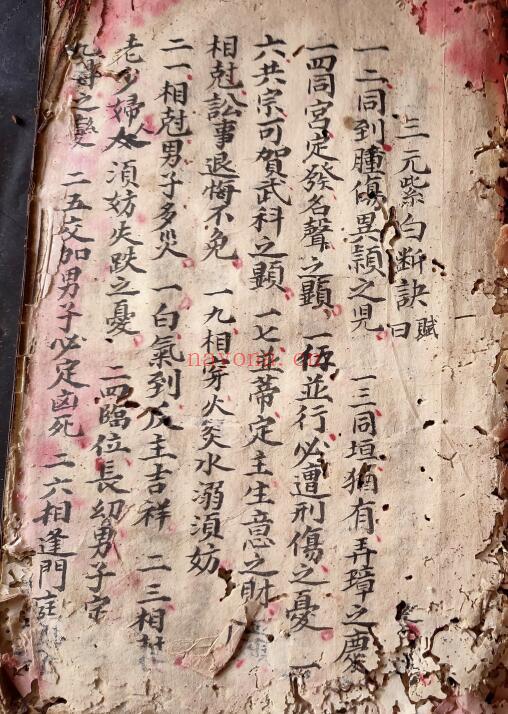 三元紫白断訣賦曰
一二同到腫傷異頴之児 一三同垣猶有弄璋之慶
一四同宮定發名聲之顕 一五並行必遭刑傷之憂 一
六共宗可賀武科之顕 一七並蒂定主生意之財
相尅訟事退悔不免 一九相穿火災水溺須妨
二一相尅男子多災 一白氣到反主吉祥 二三相
老少婦人須妨失跌之憂 二四臨位長幼男子
之變 二五交加男子必定凶死 二六相逢門庭
nayona.cn